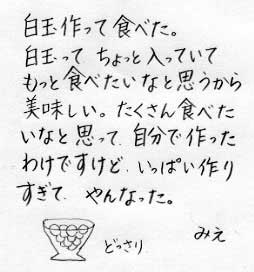 白玉作って食べた。
白玉って ちょっと入っていて
もっと食べたいなと思うから
美味しい。たくさん食べた
いなと思って、自分で作った
わけですけど、いっぱい作り
すぎて、やんなった。
どっさり
みえ